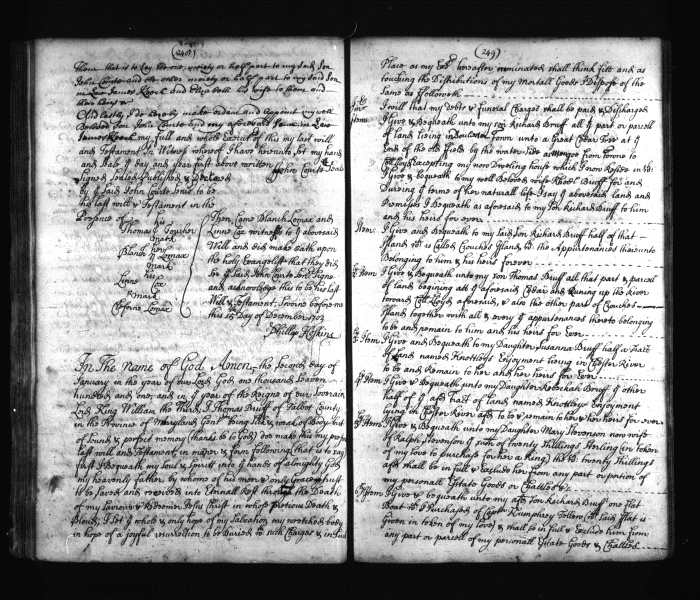 (248)
them that is to say the one moiety or half part to my said Son
John Courts and the other moiety or half part to my said Son
in Law James Keech and Elizabeth his wife to them and
their heirs &
And lastly I do hereby make ordain and Appoint my well
Beloved Son John Courts and my
James Keech my full and whole Execut of this my last will
and Testament In Witness whereof I have hereunto set my hand
and Seale ye day and year first above written
John Courts Seale
Signed Sealed Published & Declared
by ye said John Courts Senr to be
his last will & Testament in the
Presence of
his
Thomas Toucher
mark
her
Blanch Lomax
mark
his
Linne Cox
mark
Cleborne Lomax
Then Came Blanch Lomax and
Linne Cox witnesses to ye abovesaid
Will and did make oath upon
the holy Evangelist that they did
see ye said John Courts Senr Signe
and acknowledge this to be his last
Will & Testament. Sworne before me
this 15th Day of December 1702
Phillip Hoskins
In The Name of God Amen the Second day of
January in the year of our Lord God one thousand Seaven
hundred and one and in ye year of the Reigne of our Soverain
Lord King William the third I Thomas Bruff of Talbot County
in the Province of Maryland Gent being sick & weak of Body but
of Sound & perfect memory (thanks be to God) doe make this my
last will and Testament in manner & form following (that is to say)
first I Bequeath my Soul & Spirit into ye hands of almighty God
my heavenly father, by whome of his meer & only Grace I trust
to be Saved and received into Eternall Rest through the Death
of my Saviour & Redeemer Jesus Christ in whose pretious Death &
Blood, I set ye whole & only hope of my Salvation my wretched body
in hope of a joyful resurrection to be Buried wth such Charges &
(249)
Place as my Exrs hereafter nominated shall think fitt and as
touching the Distributions of my Mortall Goods I Dispose of the
Same as followeth
I will that my debts & funerall Charges shall be paid & Discharged
Item I Give & Bequeath unto my son Richard Bruff all ye part or parcell
of land lying in from unto a Great Cedar Tree at ye
End of the old field by the water side from home to
Excepting my now Dwelling house which I now Reside in
I Give & Bequeath to my well Beloved wife Rhode Bruff for and
During ye terme of her naturall life I say ye abovesaid land and
premises I Bequeath as aforesaid to my Son Richard Bruff to him
and his heirs for ever
Item I Give and Bequeath to my said Son Richard Bruff half of that
Island wch is called Crouches Island, wth the Appurtenances thereunto
Belonging to him & his heirs forever
Item I Give & Bequeath unto my son Thomas Bruff all that part & parcel
of land begining att ye aforesaid Cedar and runing up the River
toward Coll Loyds aforesaid, & also the other part of Crouches
Island together with all & every ye appurtenances thereto belonging
to be and remain to him and his heirs for Ever
Item I Give and Bequeath to my Daughter Susanna Bruff half a tract
of Land named Knottleys Enjoyment lying in Chester River
to be and Remain to her and her heirs for Ever
Item I Give & Bequeath unto my Daughter Rebeckah Bruff ye other
half of ye afd tract of land named Knottleys enjoyment
lying in Chester River afd to be & remain to her & her heirs for ever
Item I Give & Bequeath unto my Daughter Mary Stevenson now wife
of Ralph Stevenson ye sum of twenty Shillings Sterling (in token
of my love to purchase for her a Ring) the wch twenty Shillings
afd shall be in full & Exclude her from any part or portion of
my personall Estate Goods or Chattles &c
Item I Give & bequeath unto my afd son Richard Bruff one flat
Boat wch I Purchased of Captn Humphrey wch said flat is
Given in token of my love & shall be in full & Exclude him from
any part or parcell of my personall Estate Goods & Chattles